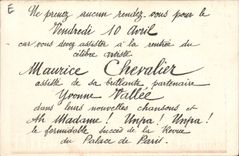 E
Ne prenez aucun rendez-vous pour le
Vendredi 10 Avril
car vous devez assister à la rentrée du
célèbre artiste
Maurice Chevalier
assisté de sa brillante partenaire
Yvonne Vallée
dans leurs nouvelles chansons et
Ah Madame! Unpa! Unpa!
le formidable succès de la Revue
du Palace de Paris.